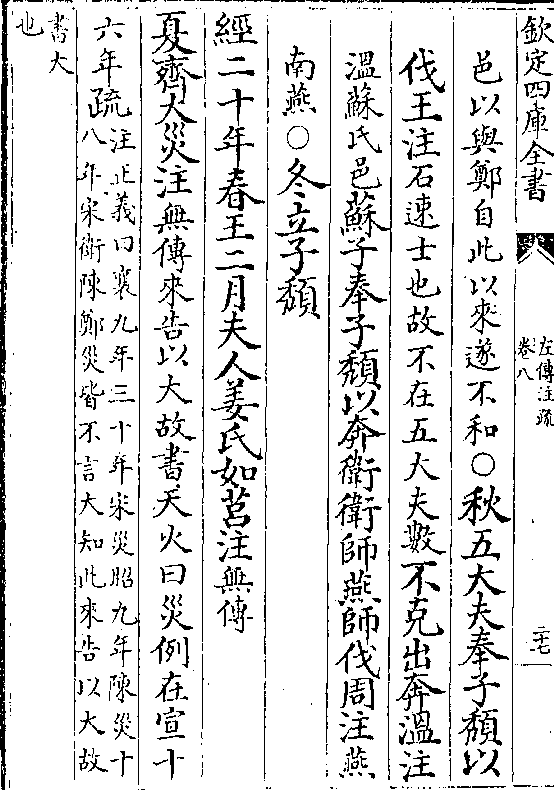 欽定四庫全書
左傳注疏
卷八
二十七
邑以與鄭自此以來遂不和○秋五大夫奉子頹以
伐王注石速士也故不在五大夫數不克出奔溫注
溫蘇氏邑蘇子奉子頹以奔衛衛師燕師伐周注燕
南燕○冬立子頹
經二十年春王二月夫人姜氏如莒注無傳
夏齊大災注無傳來告以大故書天火曰災例在宣十
六年疏注正義曰襄九年三十年宋災昭九年陳災十
八年宋衛陳鄭災皆不言大知此來告以大故
書大
也